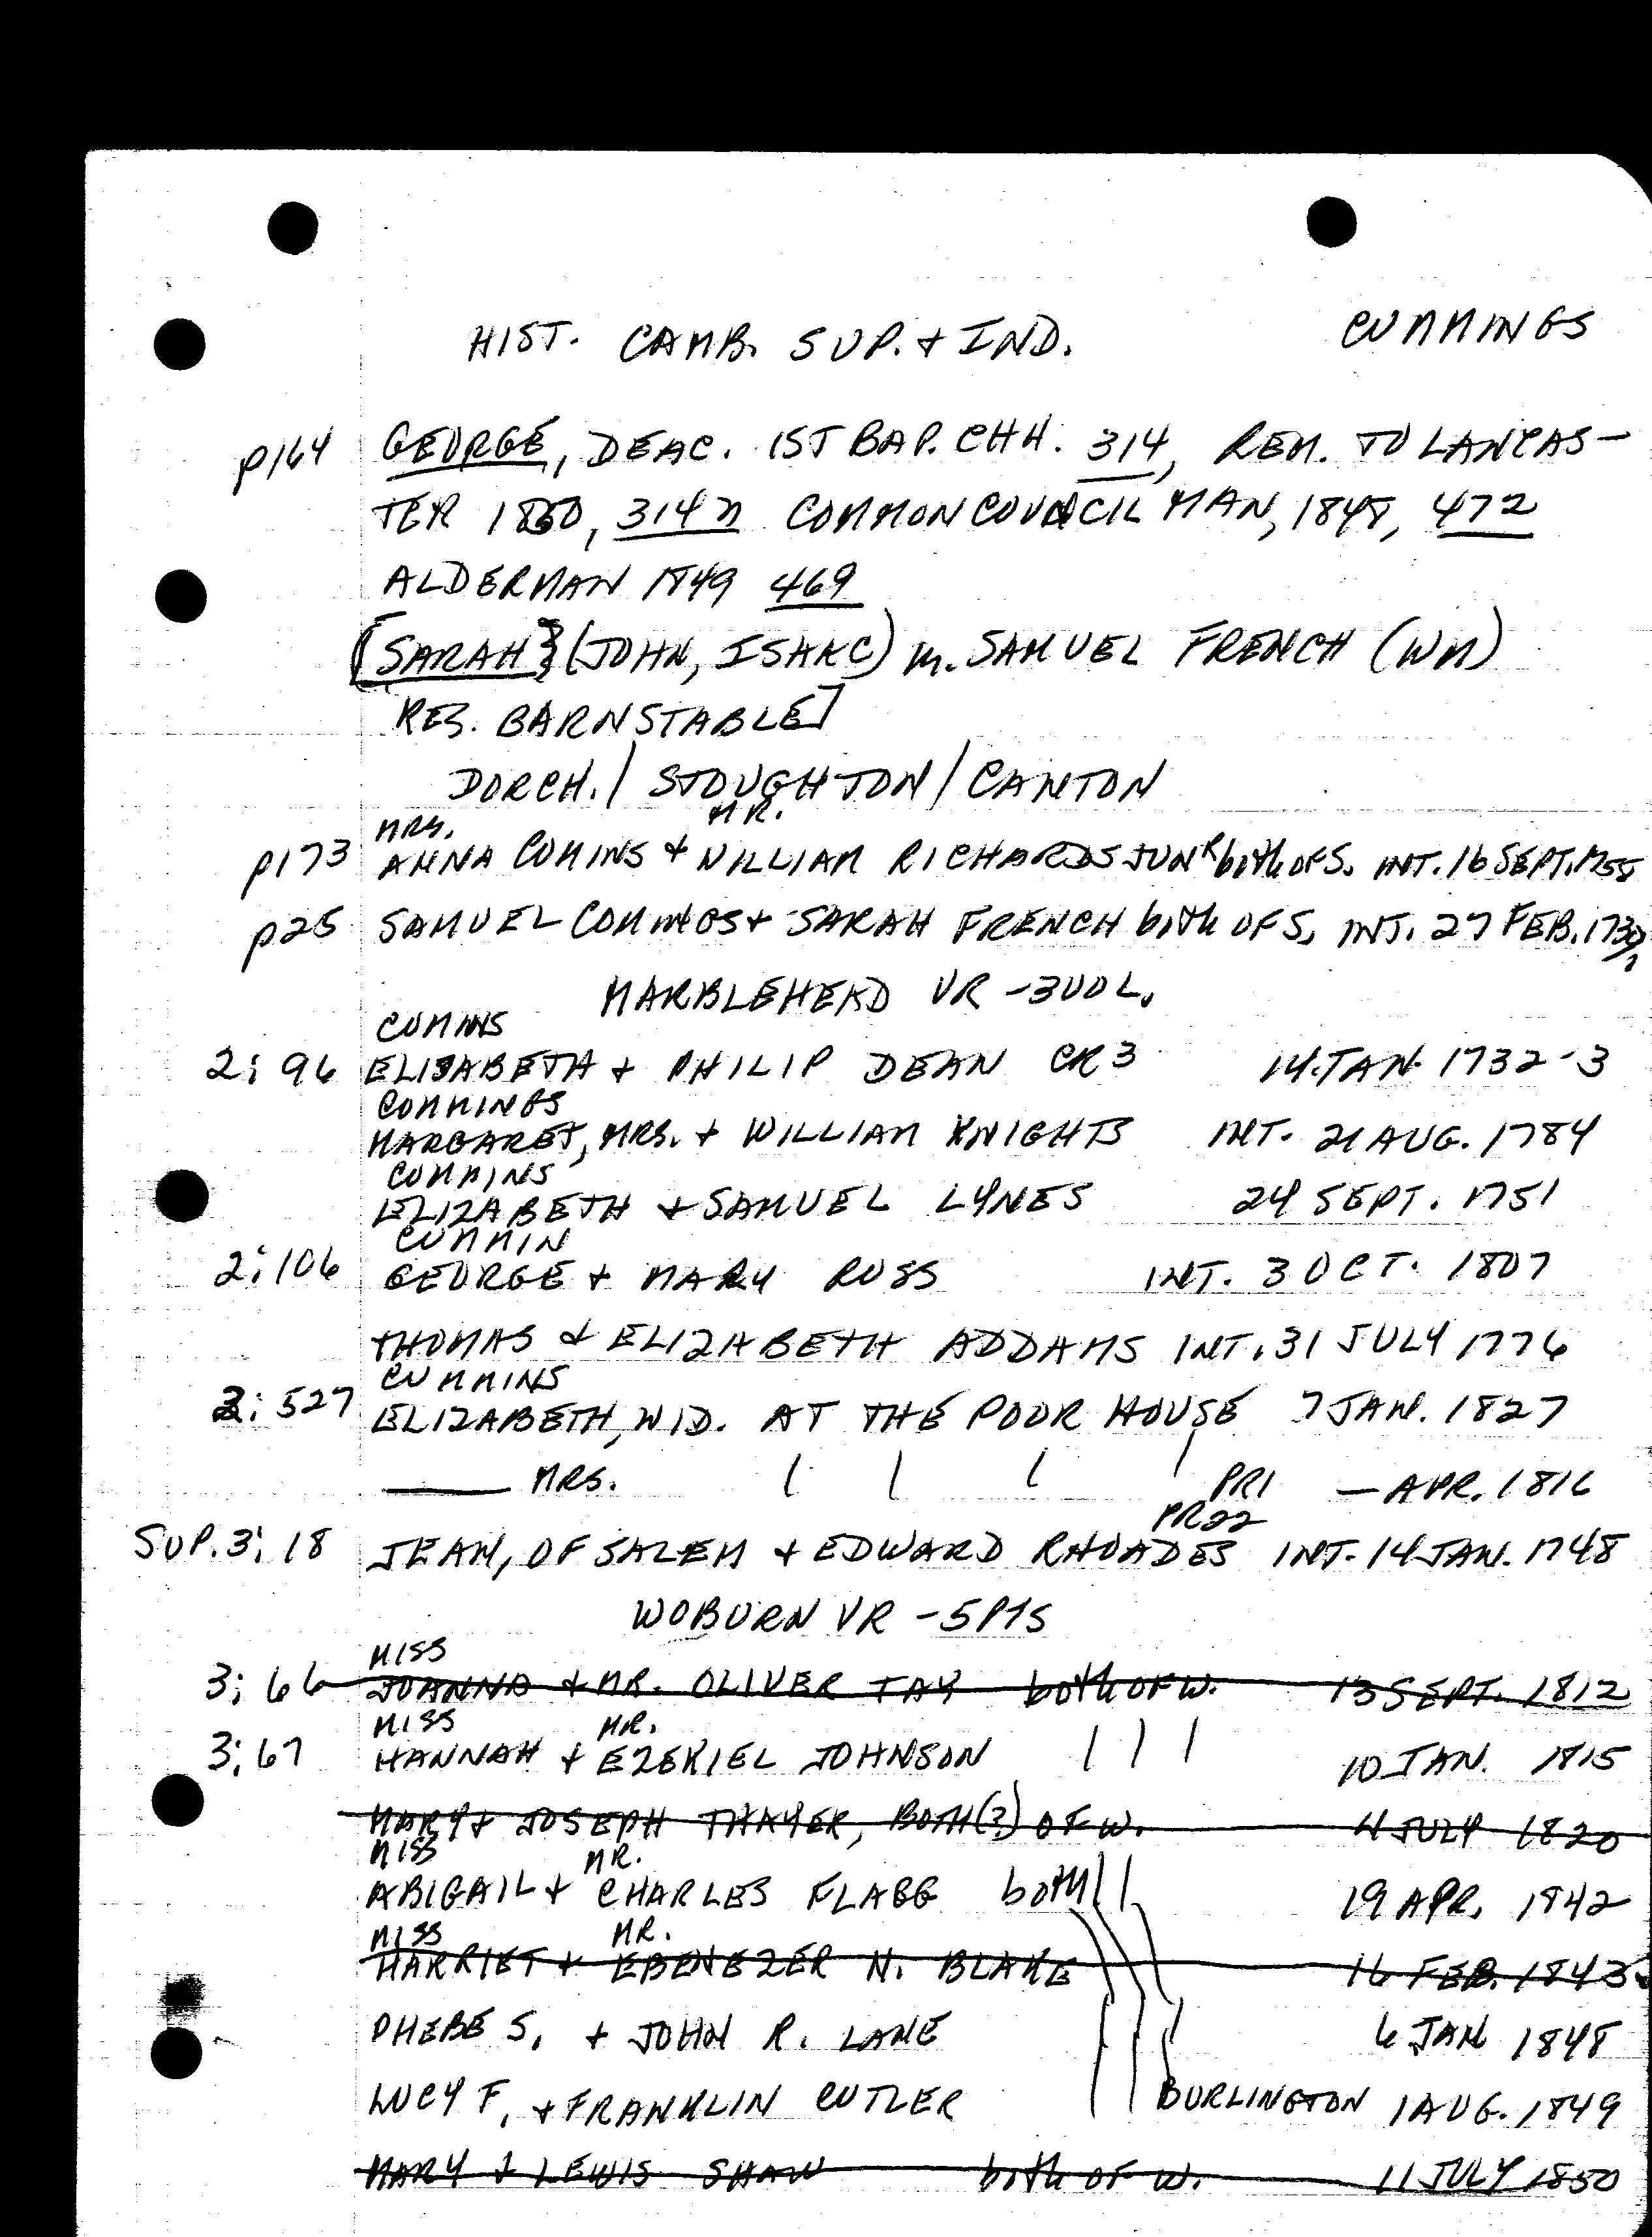 HIST. CAMB. SUP. + IND. CUMMINGS
p164 GEORGE, DEAC. 1ST BAP. CHH. 314, REM. TO LANCAS-
TER 1850, 314n COMMON COUNCIL MAN, 1848, 472
ALDERMAN 1849 469
[SARAH} (JOHN, ISAAC) m. SAMUEL FRENCH (WM)
RES. BARNSTABLE]
DORCH. / STOUGHTON / CANTON
MRS. MR.
p173 ANNA COMINS + WILLIAM RICHARDS JUNR both OF S. INT. 16 SEPT. 1758
p25 SAMUEL COMMINGS + SARAH FRENCH both OF S. INT. 27 FEB. 1730/1
MARBLEHEAD VR - 3 VOL.
CUMINS
2: 96 ELISABETH + PHILIP DEAN CR3 14 JAN. 1732-3
COMMINGS
MARGARET, MRS. + WILLIAM KNIGHTS INT. 21 AUG. 1784
COMMINS
ELIZABETH + SAMUEL LYNES 24 SEPT. 1751
CUMMIN
2: 106 GEORGE + MARY ROSS INT. 3 OCT. 1807
THOMAS + ELIZABETH ADDAMS INT. 31 JULY 1776
CUMMINS
2: 527 ELIZABETH, WID. AT THE POOR HOUSE 7 JAN. 1827
—— MRS. | | | | PR1 — APR. 1816
PR22
SUP. 3: 18 JEAN, OF SALEM + EDWARD RHOADES INT. 14 JAN. 1748
WOBURN VR - 5 PTS
MISS
3: 66 JOANNA + MR. OLIVER TAY both OF W. 13 SEPT. 1812
MISS MR.
3: 67 HANNAH + EZEKIEL JOHNSON | | | 10 JAN. 1815
MARY + JOSEPH THAYER, BOTH(?) OF W. 4 JULY 1820
MISS MR.
ABIGAIL + CHARLES FLAGG both | | 19 APR. 1842
MISS MR.
HARRIET + EBENEZER N. BLAKE 16 FEB. 1843
PHEBE S. + JOHN R. LANE 6 JAN 1848
LUCY F. + FRANKLIN CUTLER | | BURLINGTON 1 AUG. 1849
MARY + LEWIS SHAW both OF W. 11 JULY 1850